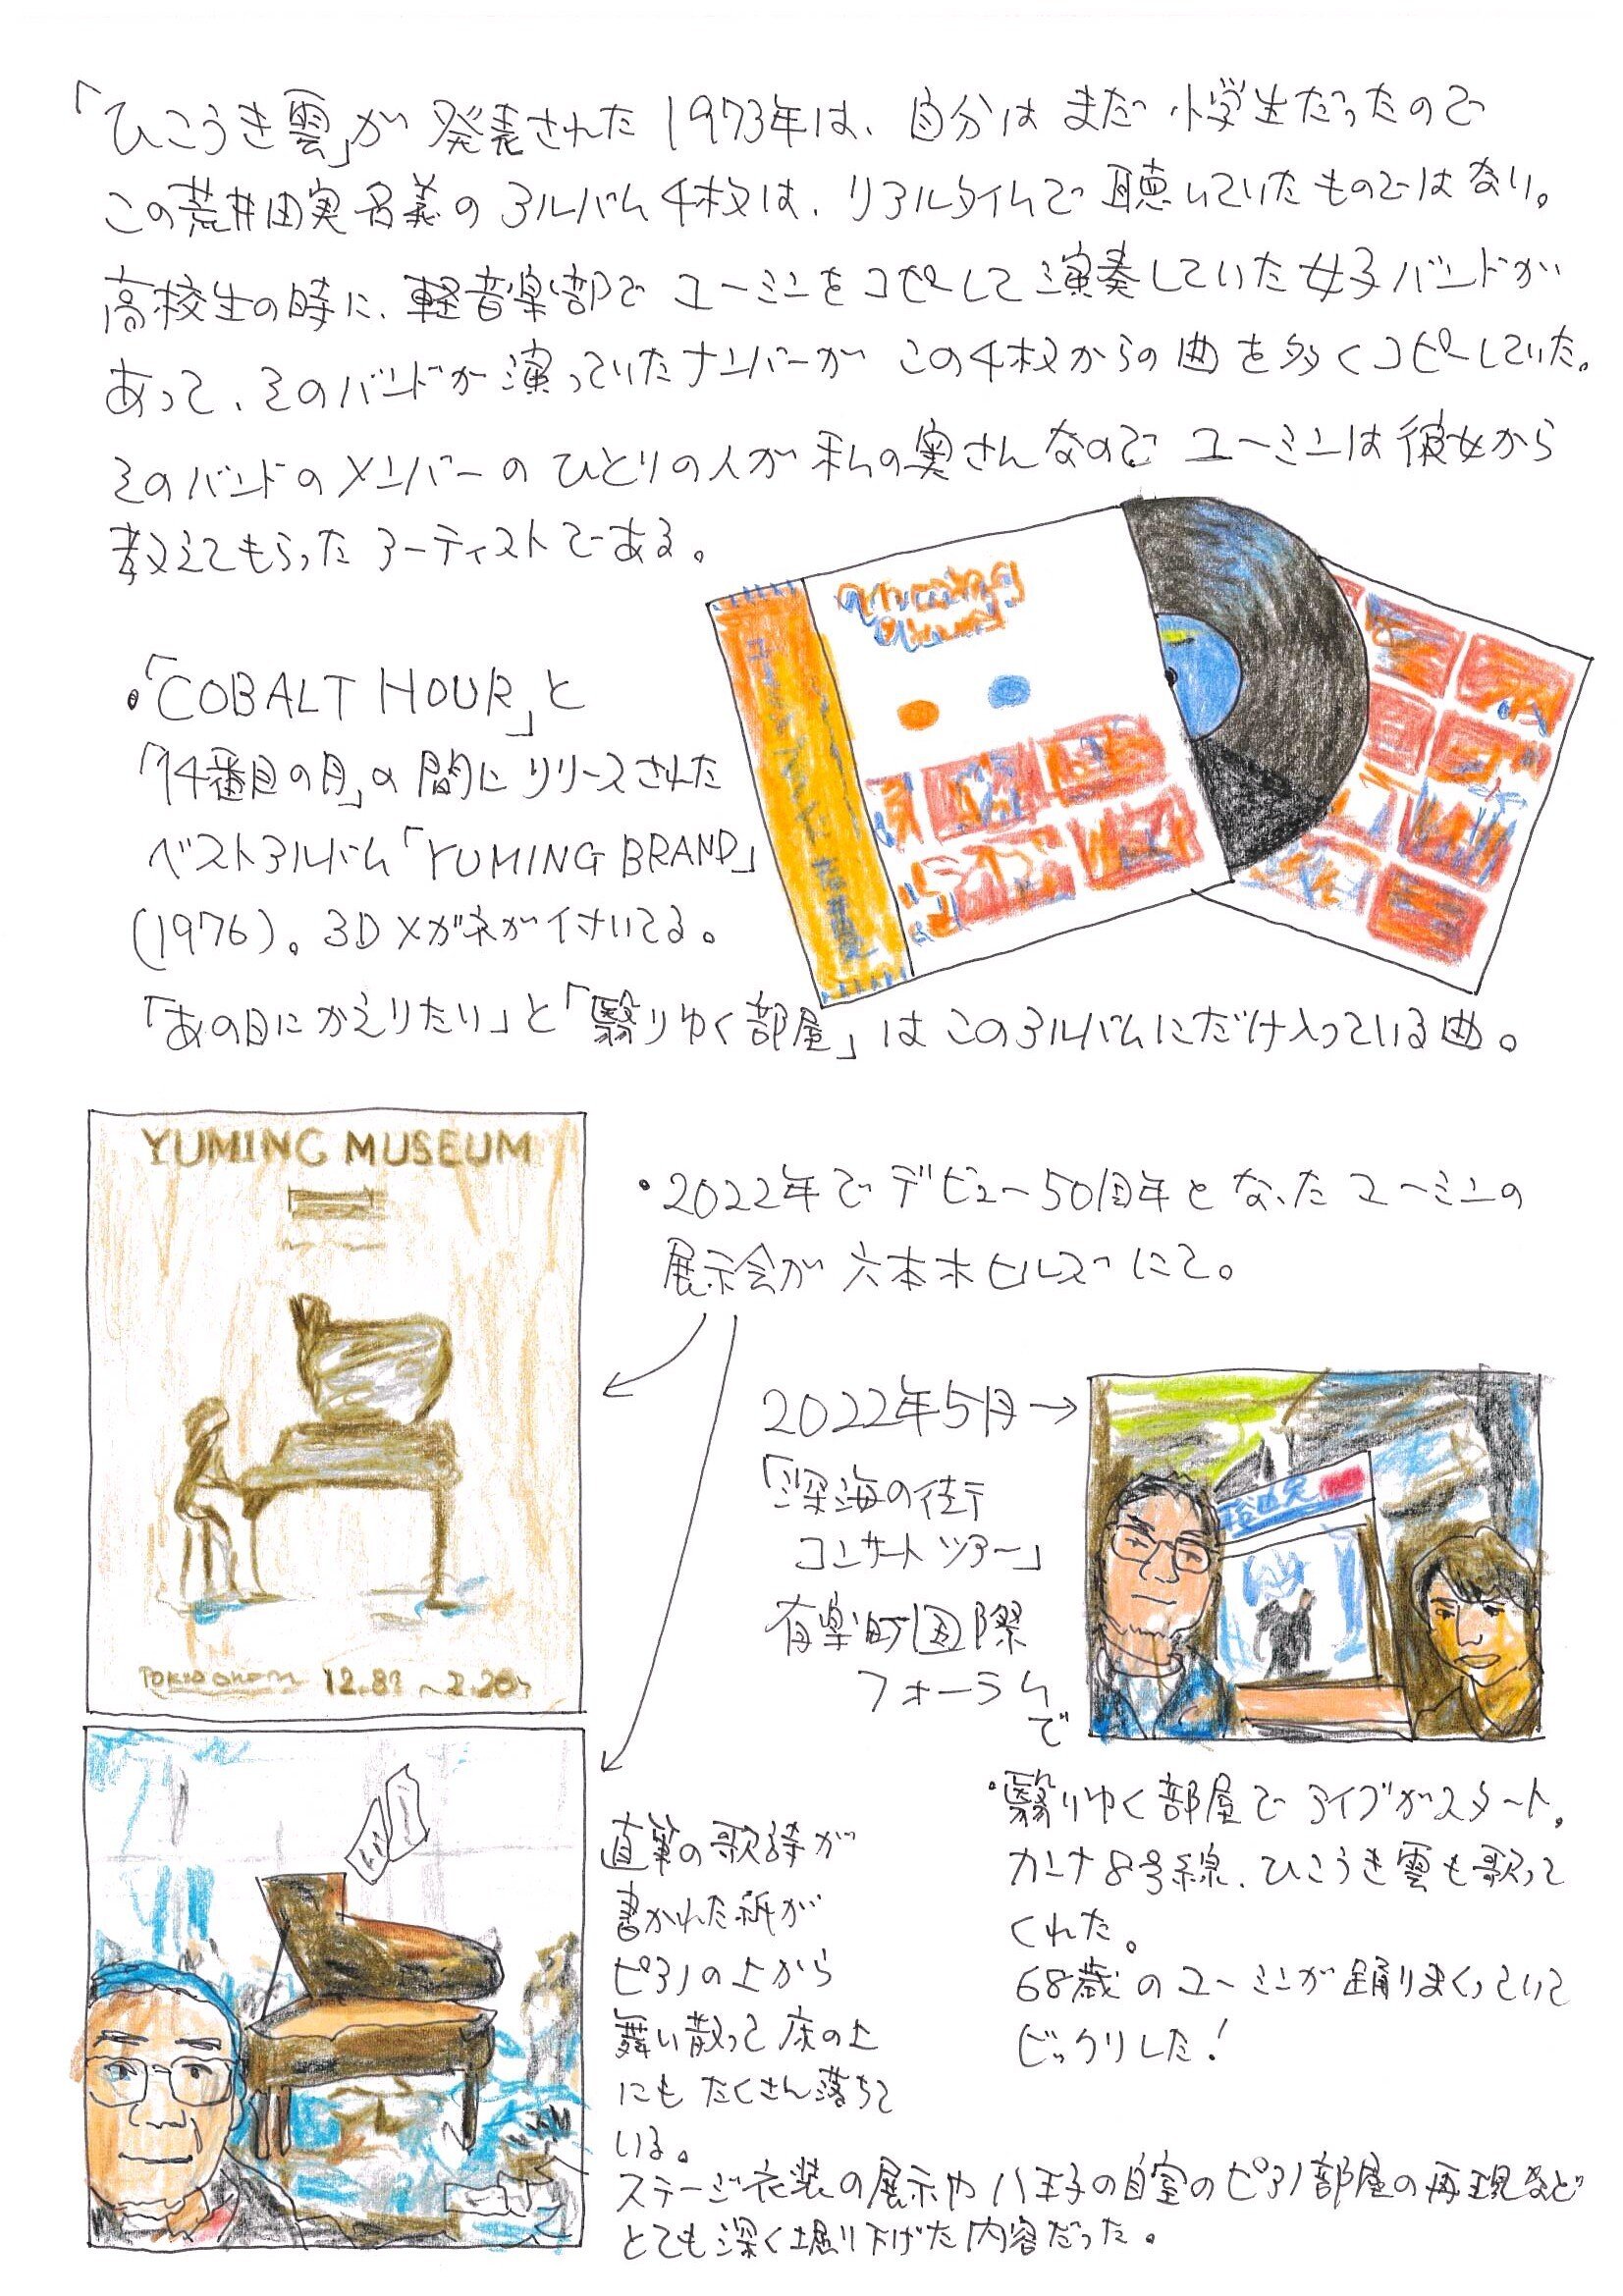 「ひこうき雲」が発表された1973年は、自分はまだ小学生だったので
この荒井由実名義のアルバム4枚は、リアルタイムで聴いていたものではない。
高校生の時に、軽音楽部でユーミンをコピーして演奏していた女子バンドが
あって、そのバンドが演っていたナンバーがこの4枚からの曲を多くコピーしていた。
そのバンドのメンバーのひとりの人が私の奥さんなのでユーミンは彼女から
教えてもらったアーティストである。
・「COBALT HOUR」と
「14番目の月」の間にリリースされた
ベストアルバム「YUMING BRAND」
(1976)。3Dメガネが付いてる。
「あの日にかえりたい」と「翳りゆく部屋」はこのアルバムにだけ入っている曲。
YUMING MUSEUM
・2022年でデビュー50周年となったユーミンの
展示会が六本木ヒルズにて。
2022年5月→
「深海の街
コンサートツアー」
有楽町国際
フォーラム
で
・翳りゆく部屋でライブがスタート。
カンナ8号線、ひこうき雲も歌って
くれた。
68歳のユーミンが踊りまくっていて
ビックリした!
直筆の歌詩が
書かれた紙が
ピアノの上から
舞い散って床の上
にもたくさん落ちて
いる。
ステージ衣装の展示や八王子の自室のピアノ部屋の再現など
とても深く堀り下げた内容だった。